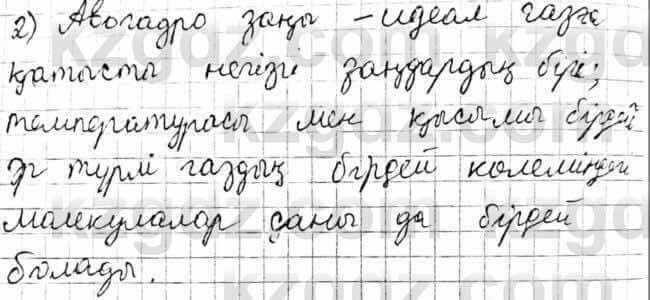 2) Авогадро заңы – идеал газға
қатысты негізгі заңдардың бірі;
температурасы мен қысымы бірдей
әр түрлі газдың бірдей көлеміндегі
молекулалар саны да бірдей
болады.